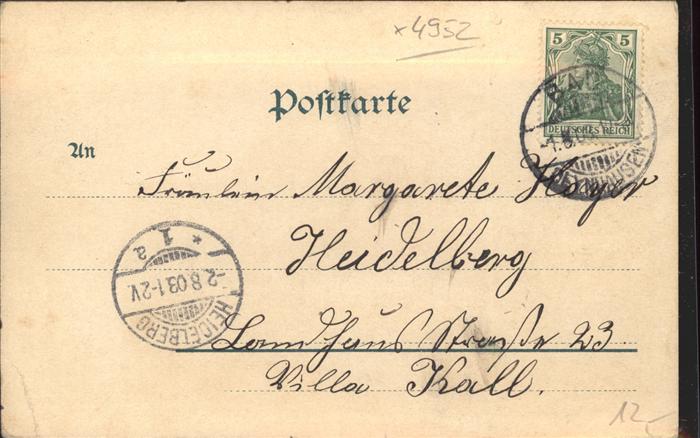 x 4952
5 5
DEUTSCHES REICH
BAD
OEYNHAUSEN
Postkarte
An
Fräulein Margarete Hoyer
Heidelberg
Landhaus Straße 23
Villa Kall.
HEIDELBERG
-2.8.03.1-2V.
* 1 a
12,-